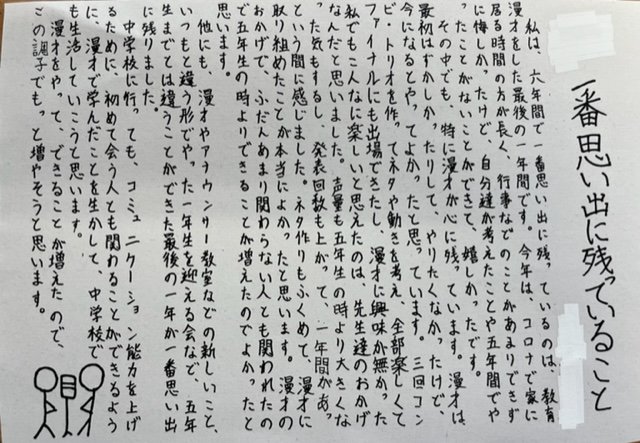 一番思い出に残っていること
私は、六年間で一番思い出に残っているのは、教育
漫才をした最後の一年間です。今年は、コロナで家に
居る時間の方が長く、行事などのことがあまりできず
に悔しかったけど、自分達が考えたことや五年間でや
ったことがないことができて、嬉しかったです。
その中でも、特に漫才が心に残っています。漫才は、
最初はずかしかったりして、やりたくなかったけど、
今になるとやってよかったと思っています。三回コン
ビ・トリオを作ってネタや動きを考え、全部楽しくて
ファイナルにも出場できたし、漫才に興味が無かった
私でもこんなに楽しいと思えたのは、先生達のおかげ
なんだと思いました。声量も五年生の時より大きくな
った気もするし、発表回数も上がって、一年間があっ
という間に感じました。ネタ作りもふくめて、漫才に
取り組めたことが本当によかったと思います。漫才の
おかげで、ふだんあまり関わらない人とも関われたの
で五年生の時よりできることが増えたのでよかったと
思います。
他にも、漫才やアナウンサー教室などの新しいこと、
いつもと違う形でやった一年生を迎える会など、五年
生までとは違うことができた最後の一年が一番思い出
に残りました。
中学校に行っても、コミュニケーション能力を上げ
るために、初めて会う人とも関わることができるよう
に、漫才で学んだことを生かして、中学校で
も生活していこうと思います。
漫才をやって、できることが増えたので、
この調子でもっと増やそうと思います。